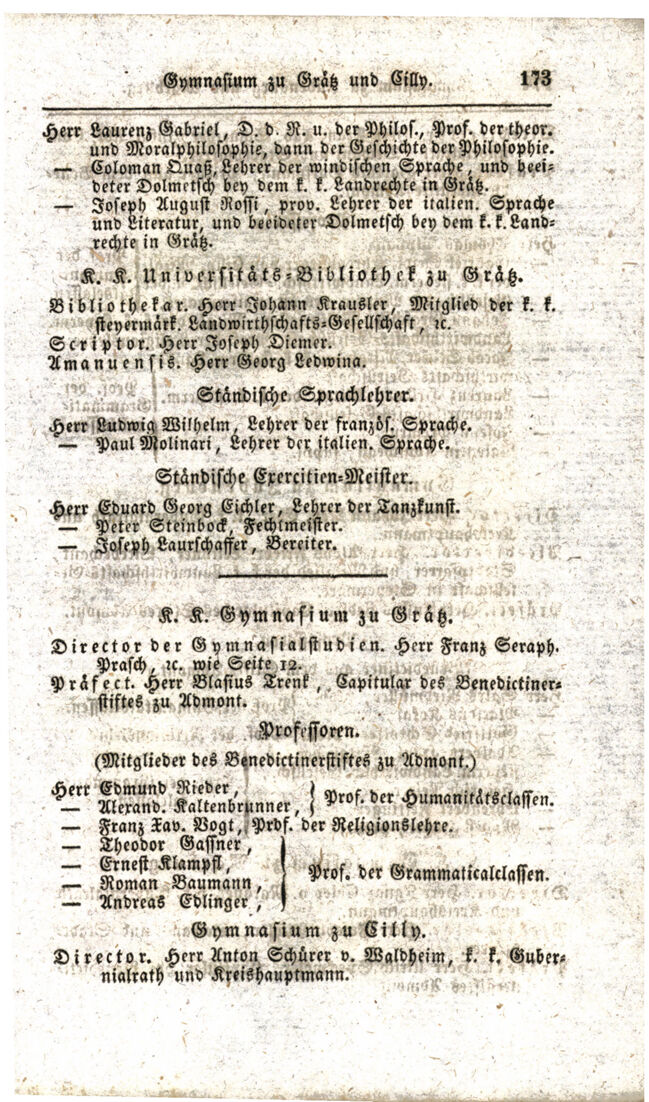 Gymnasium zu Grätz und Cilly. 173
Herr Laurenz Gabriel, D. d. R. u. der Philos., Prof. der theor.
und Moralphilosophie, dann der Geschichte der Philosophie.
— Coloman Quaß, Lehrer der windischen Sprache, und beei-
deter Dolmetsch bey dem k. k. Landrechte in Grätz.
— Joseph August Rossi, prov. Lehrer der italien. Sprache
und Literatur, und beeideter Dolmetsch bey dem k. k. Land-
rechte in Grätz.
K. K. Universitäts-Bibliothek zu Grätz.
Bibliothekar. Herr Johann Krausler, Mitglied der k. k.
steyermärk. Landwirthschafts-Gesellschaft, ꝛc.
Scriptor. Herr Joseph Diemer.
Amanuensis. Herr Georg Ledwina.
Ständische Sprachlehrer.
Herr Ludwig Wilhelm, Lehrer der französ. Sprache.
— Paul Molinari, Lehrer der italien. Sprache.
Ständische Exercitien-Meister.
Herr Eduard Georg Eichler, Lehrer der Tanzkunst.
— Peter Steinbock, Fechtmeister.
— Joseph Laurschaffer, Bereiter.
K. K. Gymnasium zu Grätz.
Director der Gymnasialstudien. Herr Franz Seraph.
Prasch, ꝛc. wie Seite 12.
Präfect. Herr Blasius Trenk, Capitular des Benedictiner-
stiftes zu Admont.
Professoren.
(Mitglieder des Benedictinerstiftes zu Admont.)
Herr Edmund Rieder,
— Alexand. Kaltenbrunner, } Prof. der Humanitätsclassen.
— Franz Xav. Vogt, Prof. der Religionslehre.
— Theodor Gassner,
— Ernest Klampfl,
— Roman Baumann, } Prof. der Grammaticalclassen.
— Andreas Edlinger,
Gymnasium zu Cilly.
Director. Herr Anton Schürer v. Waldheim, k. k. Guber-
nialrath und Kreishauptmann.